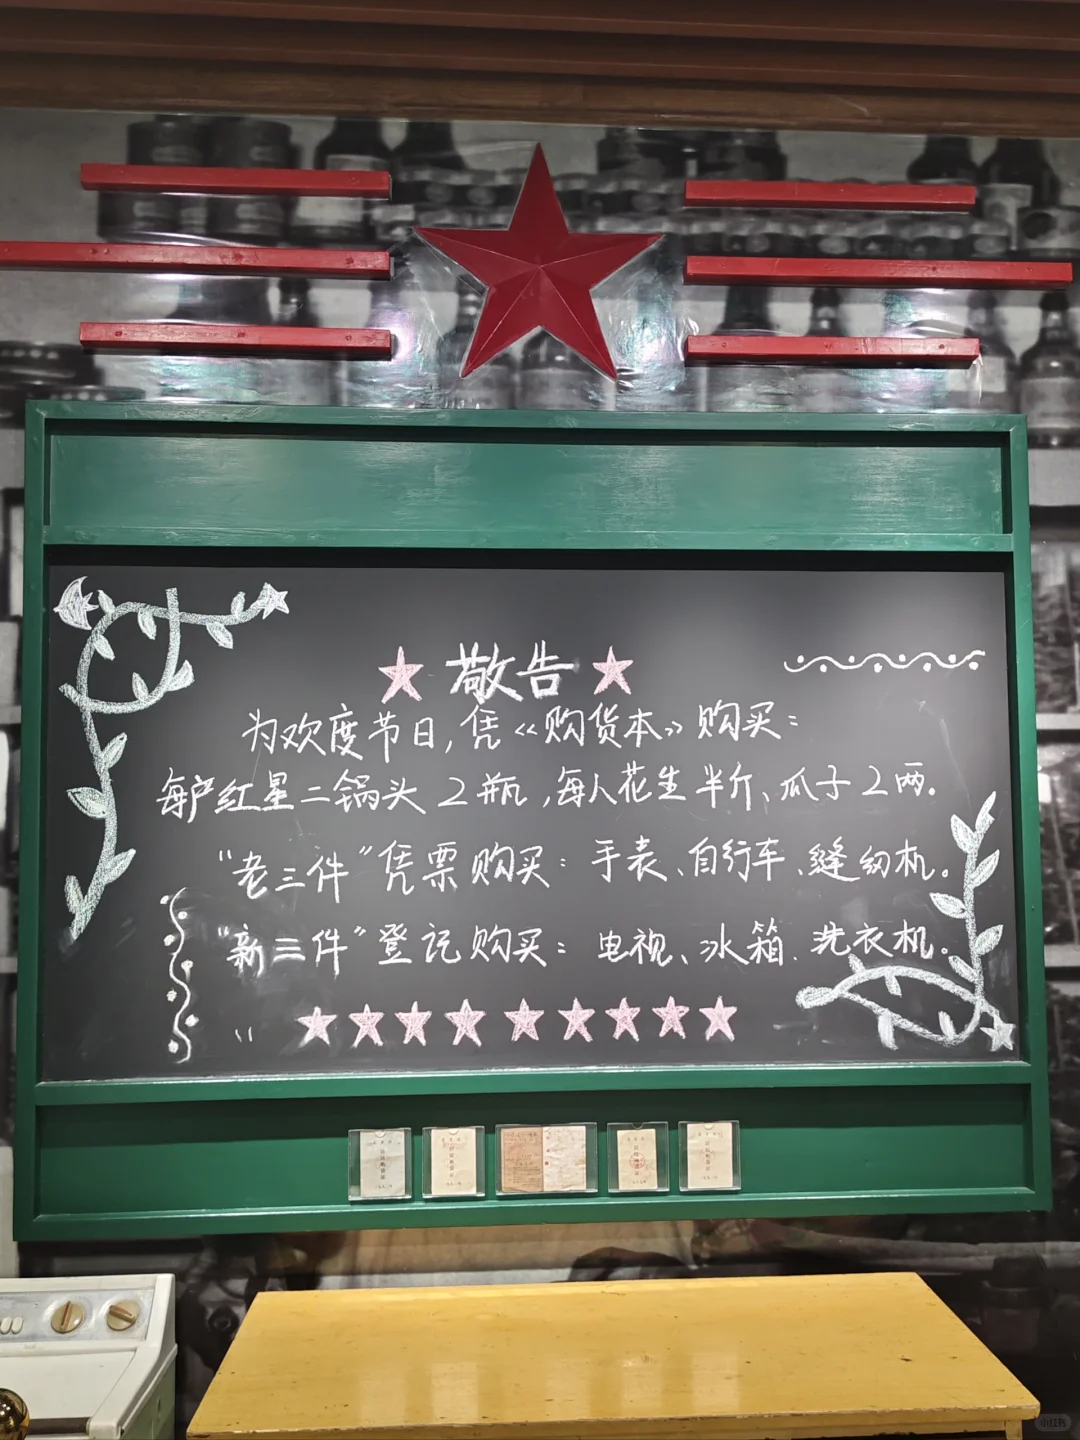 敬告
为欢度节日,凭《购货本》购买:
每户红星二锅头2瓶,每人花生半斤、瓜子2两。
"老三件"凭票购买:手表、自行车、缝纫机。
"新三件"登记购买:电视、冰箱、洗衣机。
"
小红书